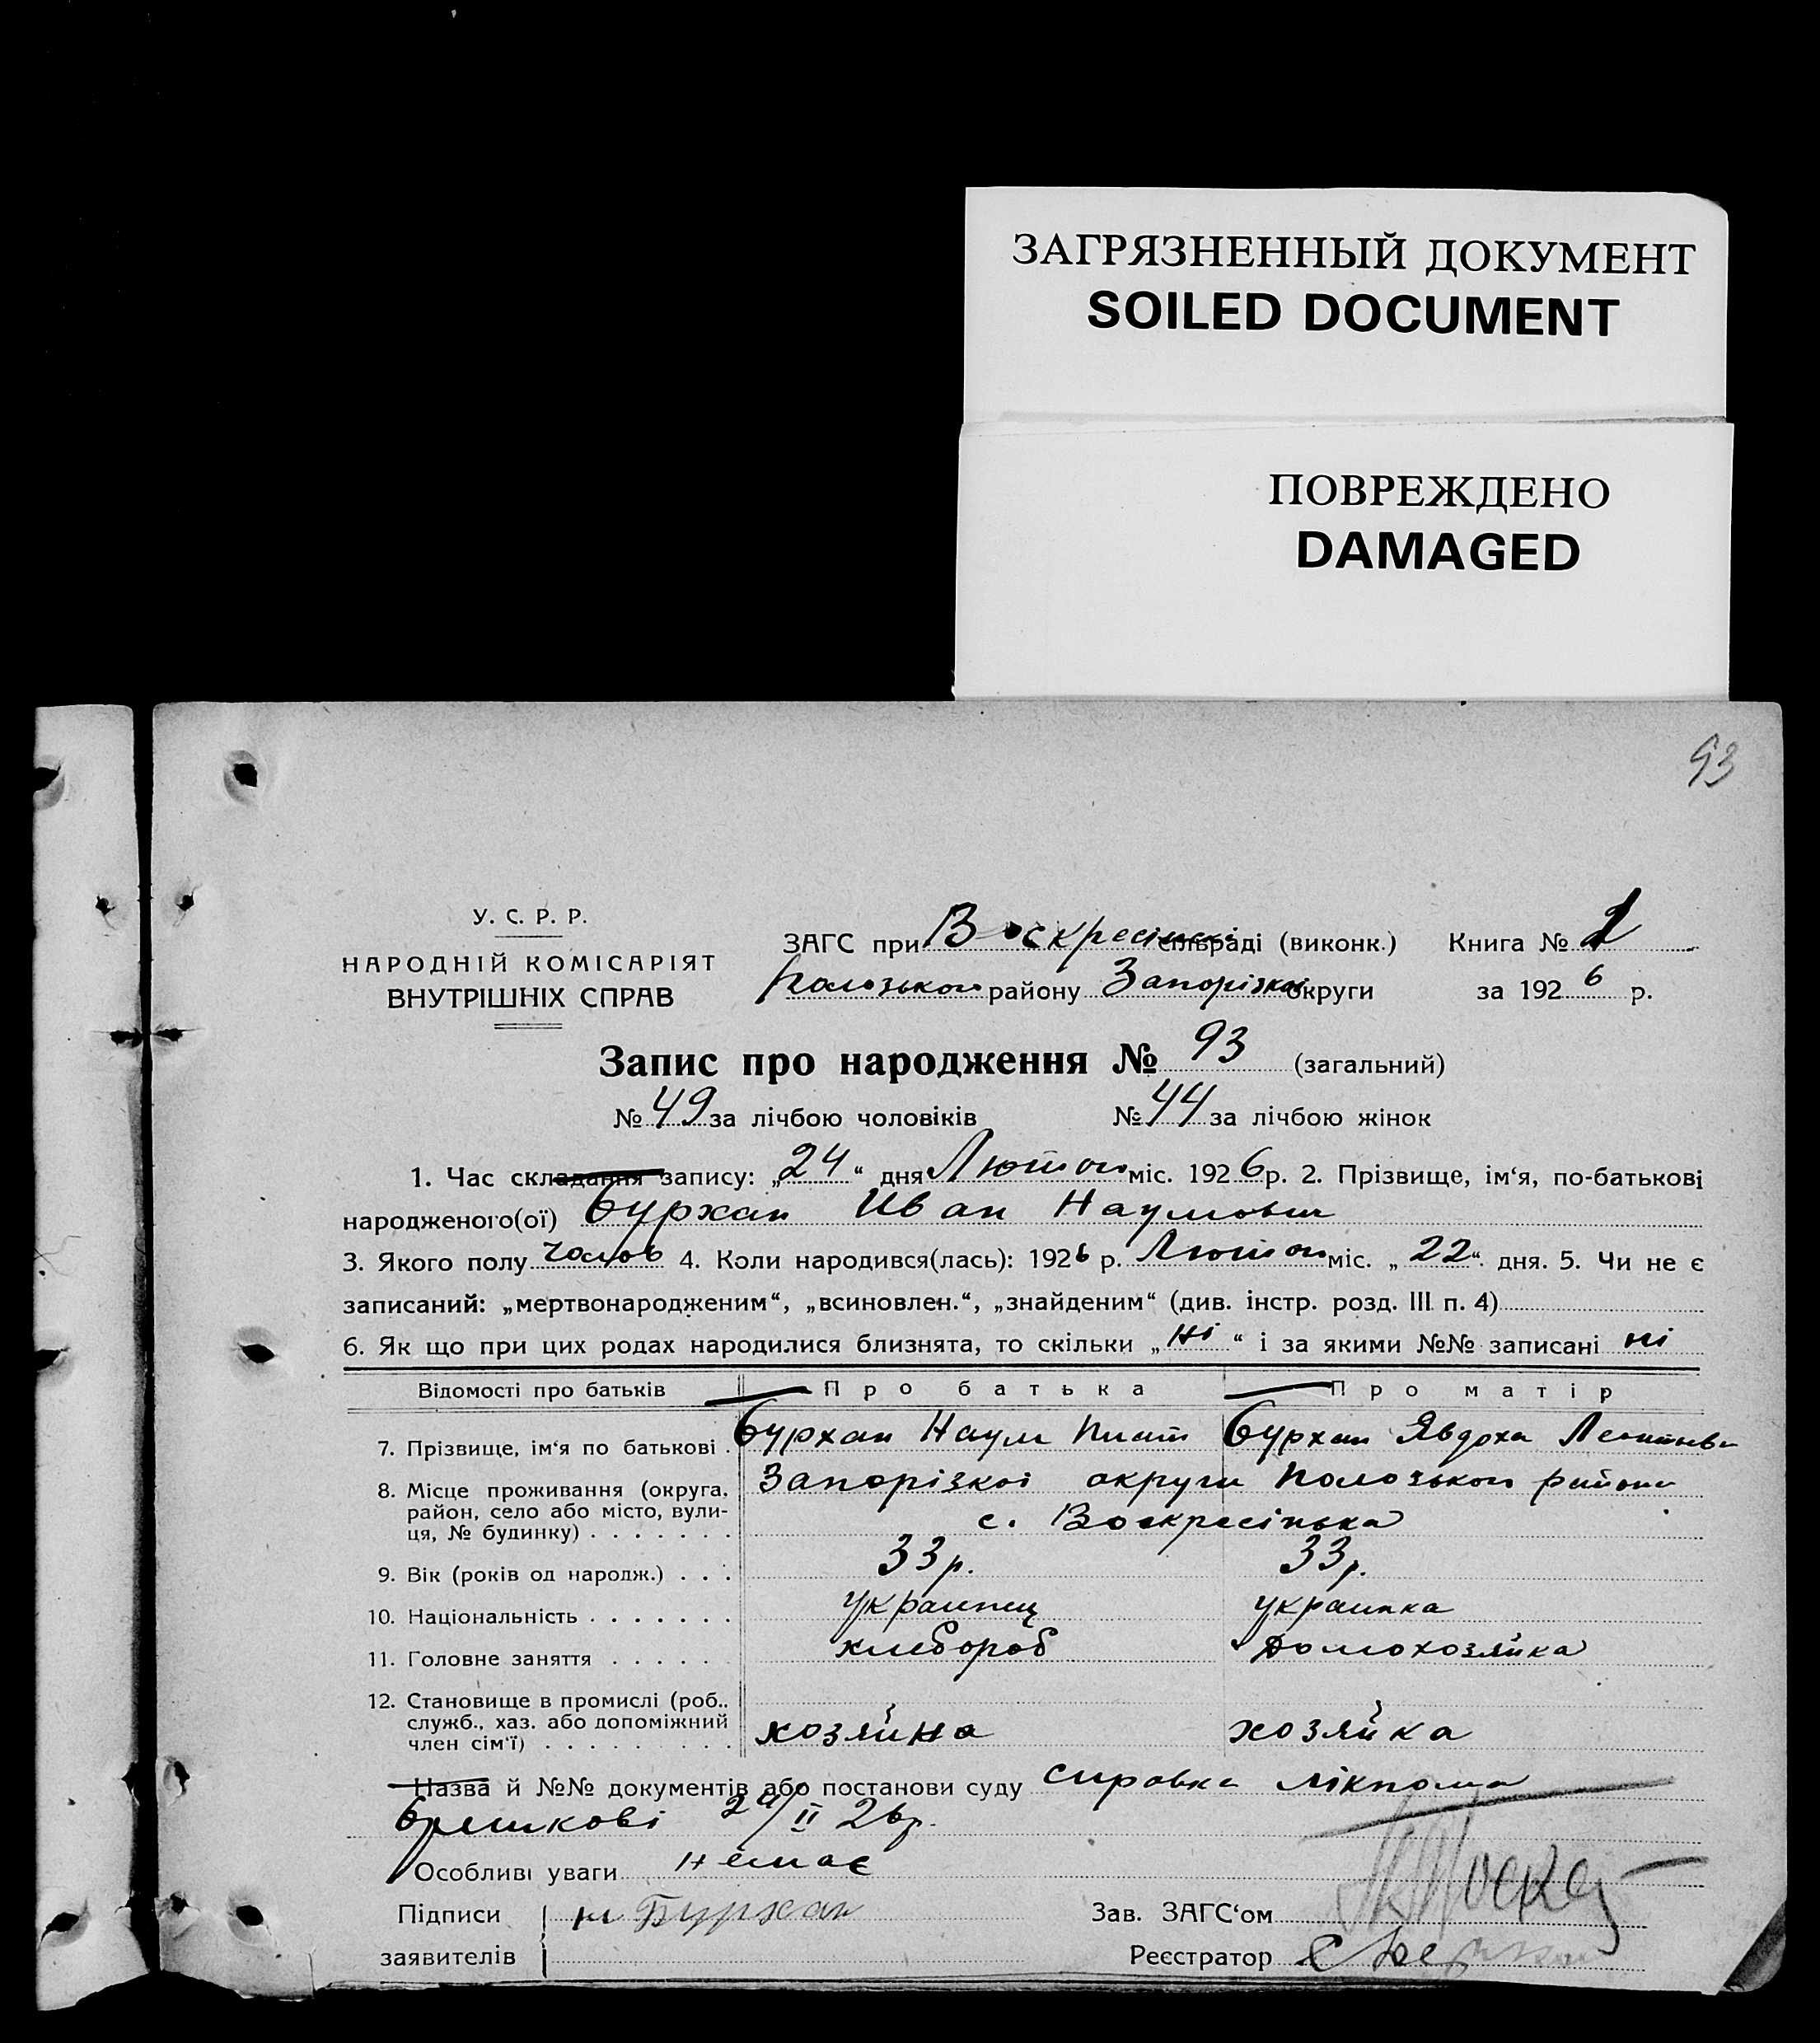 ЗАГРЯЗНЕННЫЙ ДОКУМЕНТ
SOILED DOCUMENT
ПОВРЕЖДЕНО
DAMAGED
93
У. С. Р. Р.
НАРОДНІЙ КОМІСАРІЯТ
ВНУТРІШНІХ СПРАВ
ЗАГС при Воскресінські сільраді (виконк.) Книга № 1
Полозького району Запорізкої округи за 1926 р.
Запис про народження № 93 (загальний)
№ 49 за лічбою чоловіків № 44 за лічбою жінок
1. Час складання запису: „24“ дня Лютого міс. 1926 р. 2. Прізвище, ім‘я, по-батькові
народженого(ої) Бурхан Иван Наумович
3. Якого полу чолов 4. Коли народився(лась): 1926 р. Лютого міс. „22“ дня. 5. Чи не є
записаний: „мертвонародженим“, „всиновлен.“, „знайденим“ (див. інстр. розд. III п. 4)
6. Як що при цих родах народилися близнята, то скільки „ні“ і за якими №№ записані ні
Відомості про батьків Про батька Про матір
7. Прізвище, ім‘я по батькові Бурхан Наум Бурхан Явдоха
8. Місце проживання (округа, район, село або місто, вулиця, № будинку) Запорізкоі округи Полозького району
с. Воскресінька
9. Вік (років од народж.) 33 р. 33 р.
10. Національність украинец украинка
11. Головне заняття хлебороб домохозяйка
12. Становище в промислі (роб., служб., хаз. або допоміжний член сім‘ї) хозяйна хозяйка
Назва й №№ документів або постанови суду справка лікпома
24/II 26р.
Особливі уваги немає
Підписи заявителів Бурхан
Зав. ЗАГС‘ом
Реєстратор